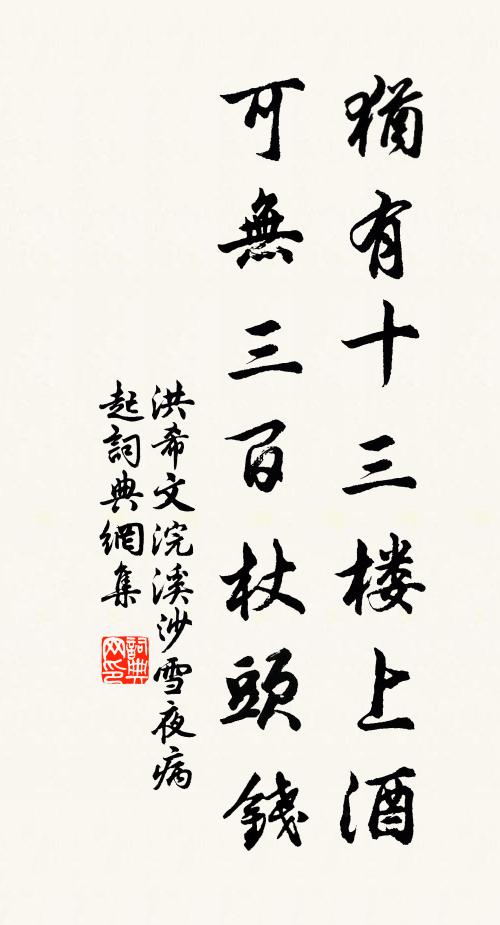 猶有十三楼上酒
可無三百杖頭錢
洪希文浣溪沙雪夜病
起詞典網集
詞典
网印